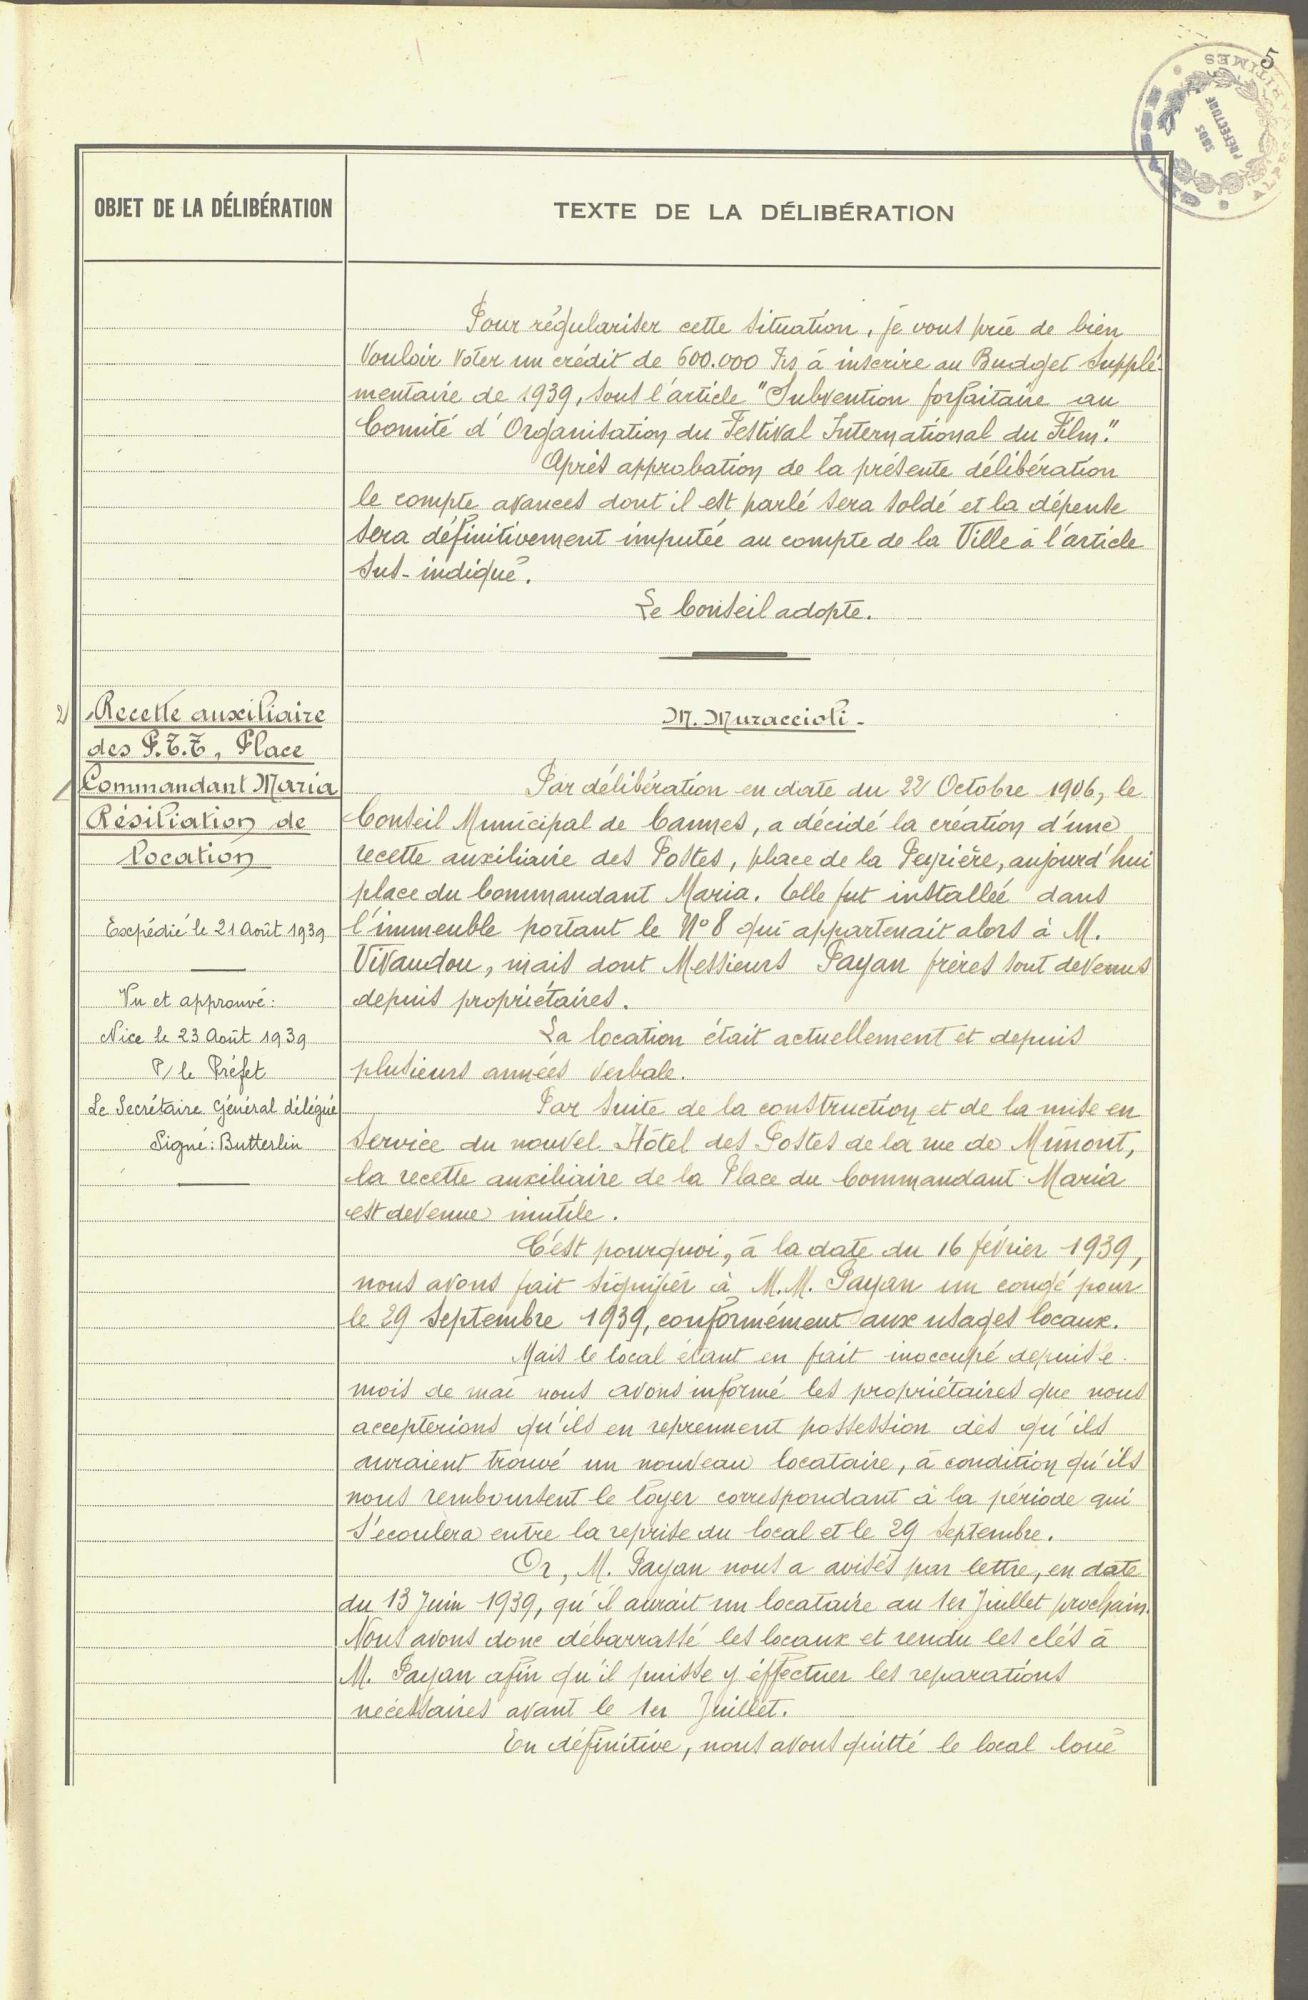 5
ALPES MARITIMES
SOUS
PRÉFECTURE
GRASSE
OBJET DE LA DÉLIBÉRATION
TEXTE DE LA DÉLIBÉRATION
Pour régulariser cette situation, je vous prie de bien
vouloir voter un crédit de 600.000 Frs à inscrire au Budget Supplé-
mentaire de 1939, sous l'article "Subvention forfaitaire au
Comité d'Organisation du Festival International du Film."
Après approbation de la présente délibération
le compte avances dont il est parlé sera soldé et la dépense
sera définitivement imputée au compte de la Ville à l'article
sus-indiqué.
Le Conseil adopte.
2/
Recette auxiliaire
des P.T.T, Place
Commandant Maria
Résiliation de
location
Expédié le 21 Août 1939
Vu et approuvé:
Nice le 23 Août 1939
P/ le Préfet
Le Secrétaire Général délégué
Signé: Butterlin
M. Muraccioli-
Par délibération en date du 22 Octobre 1906, le
Conseil Municipal de Cannes, a décidé la création d'une
recette auxiliaire des Postes, place de la Peyrière, aujourd'hui
place du Commandant Maria. Elle fut installée dans
l'immeuble portant le N° 8 qui appartenait alors à M.
Vivaudou, mais dont Messieurs Payan frères sont devenus
depuis propriétaires.
La location était actuellement et depuis
plusieurs années verbale.
Par suite de la construction et de la mise en
service du nouvel Hôtel des Postes de la rue de Mimont,
la recette auxiliaire de la Place du Commandant Maria
est devenue inutile.
C'est pourquoi, à la date du 16 février 1939,
nous avons fait signifier à M.M. Payan un congé pour
le 29 Septembre 1939, conformément aux usages locaux.
Mais le local étant en fait inoccupé depuis le
mois de mai nous avons informé les propriétaires que nous
accepterions qu'ils en reprennent possession dès qu'ils
auraient trouvé un nouveau locataire, à condition qu'ils
nous remboursent le loyer correspondant à la période qui
s'écoulera entre la reprise du local et le 29 Septembre.
Or, M. Payan nous a avisés par lettre, en date
du 13 Juin 1939, qu'il aurait un locataire au 1er Juillet prochain.
Nous avons donc débarrassé les locaux et rendu les clés à
M. Payan afin qu'il puisse y éffectuer les reparations
nécessaires avant le 1er Juillet.
En définitive, nous avons quitté le local loué